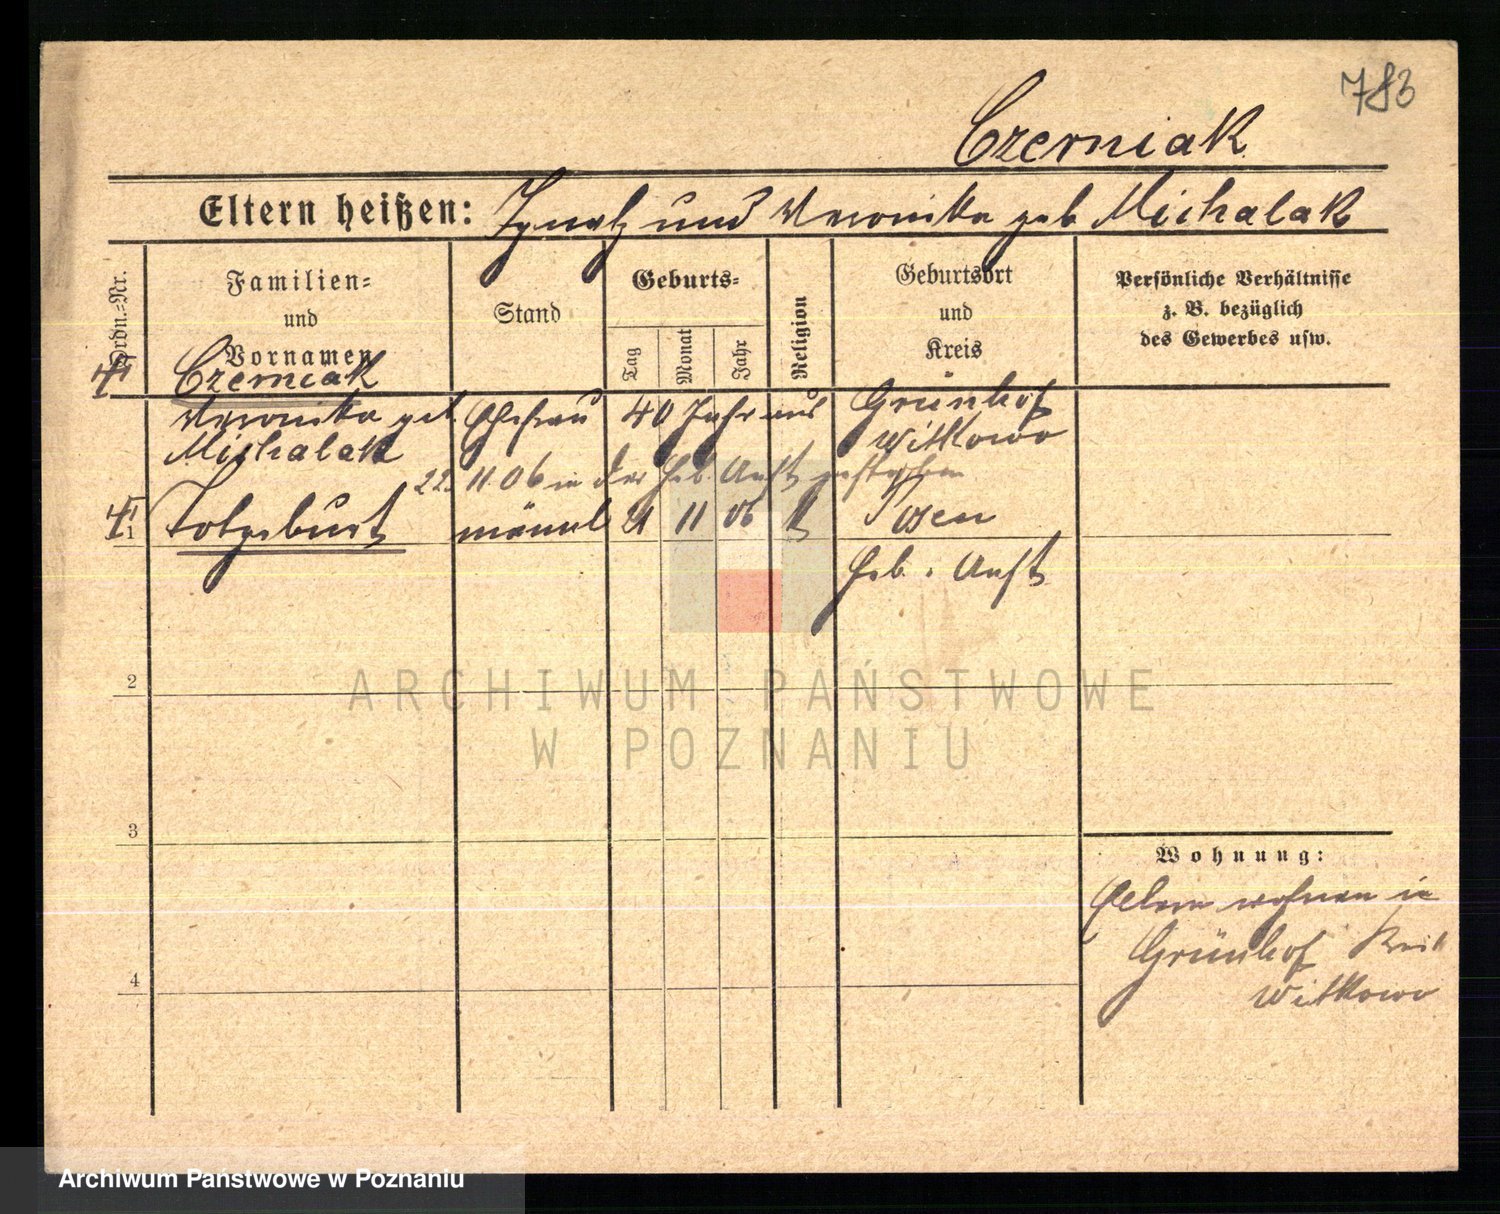 783
Czerniak
Eltern heißen: Ignatz und Veronika geb Michalak
Ordn.-Nr.
Familien-
und
Vornamen
Stand
Geburts-
Tag
Monat
Jahr
Religion
Geburtsort
und
Kreis
Persönliche Verhältnisse
z. B. bezüglich
des Gewerbes usw.
Czerniak
Veronika geb. Ehefrau 40 Jahr aus Grünhof
Michalak Witkowo
22. 11. 06 in der Heb. Anst gestorben
1 Totgeburt männl 21 11 06 k Posen
Heb. Anst
2
3
4
Wohnung:
Eltern wohnen in
Grünhof Kreis
Witkowo
ARCHIWUM PAŃSTWOWE
W POZNANIU
Archiwum Państwowe w Poznaniu